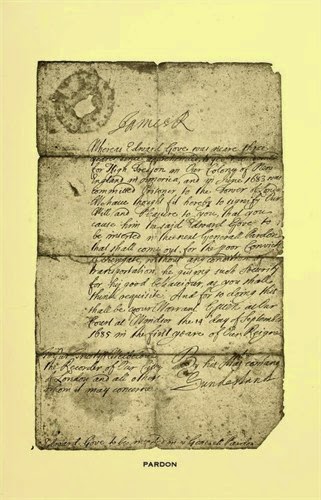 James R
Whereas Edward Gove was neare three
for High Treason in Our Colony of New
England in America, and in June 1683 was
committed Prisoner to the Tower of London
Wee have thought fit hereby to signify Our
Will and Pleasure to you, that you
cause him the said Edward Gove to
be inserted in the next Generall Pardon
that shall come out for the poor Convicts
of Newgate, without any condition of
transportation he giving such Security
for his good behaviour, as you shall
think requisite. And for so doing this
shall be your Warrant Given at Our
Court at Windsor the 14 day of September
1685 in the first year of Our Reigne
By his Majts command
Sunderland
the Recorder of Our City
of London and all others
whom it may concerne
Edward Gove to be inserted in y Generall Pardon
PARDON